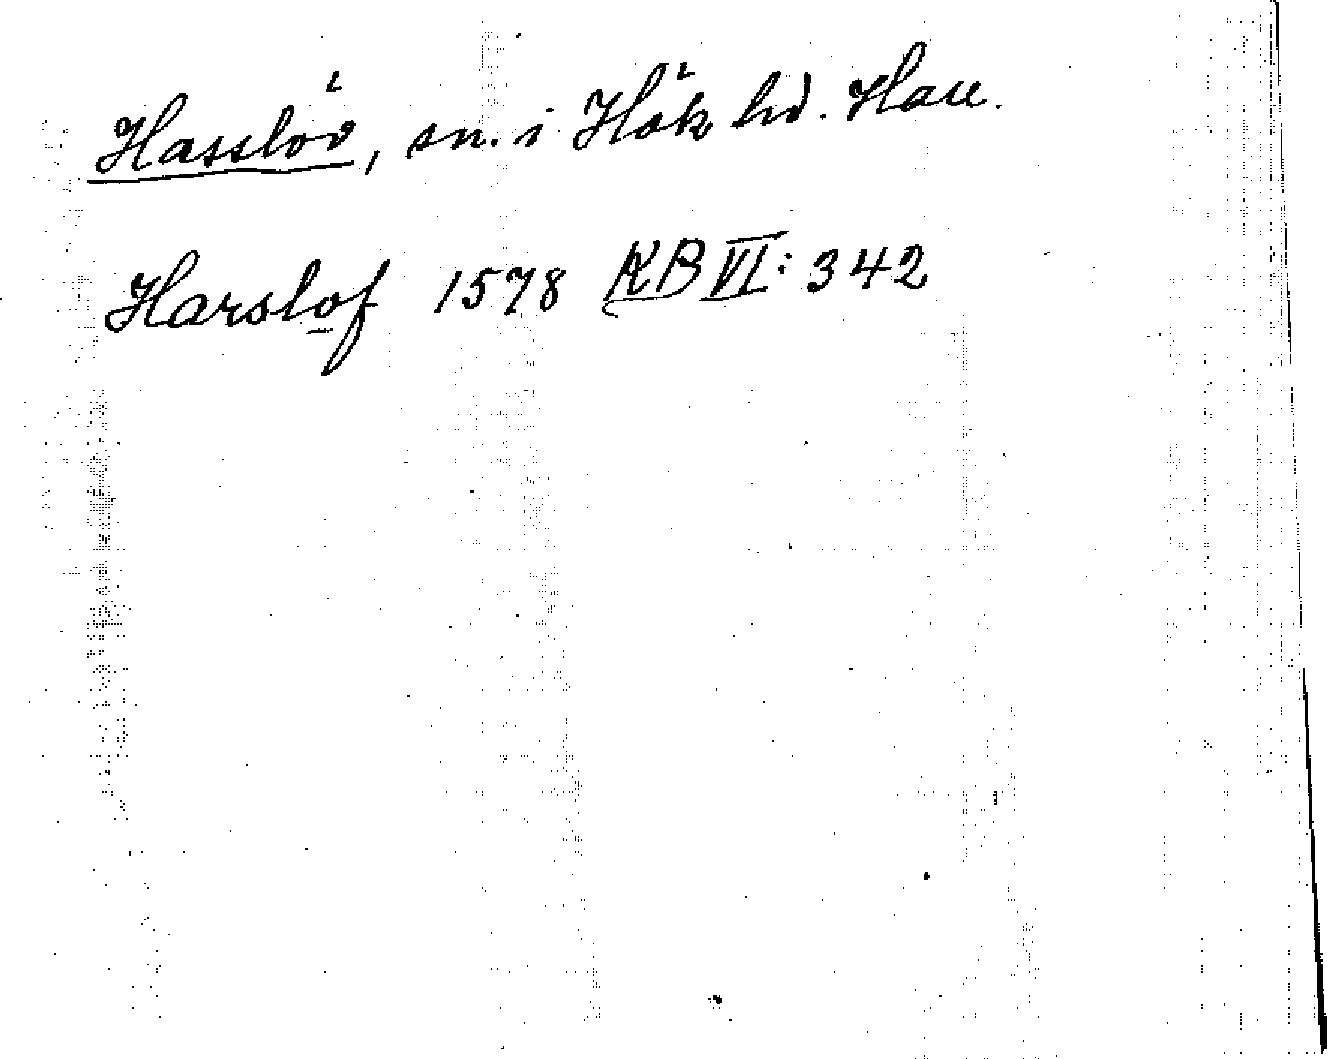 Hasslöv, sn. i Höks hd. Hall.
Harslof 1578 KB VI: 342